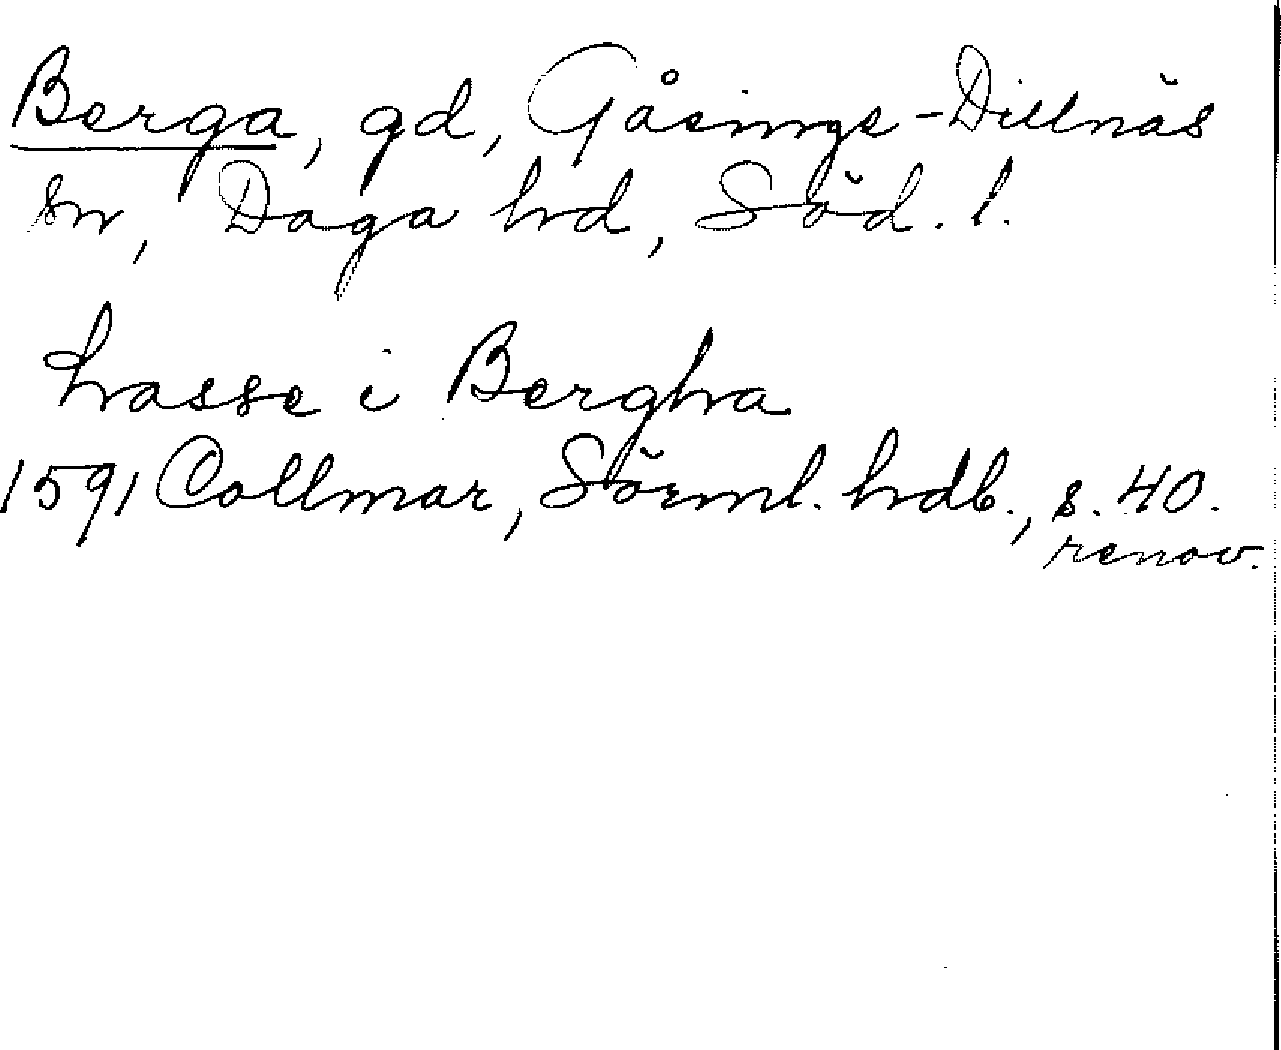 Berga, gd, Gåsinge-Dillnäs
sn, Daga hd, Söd. l.
hasse i Bergha
1591 Collmar, Sörml. hdb., s. 40.
renov.